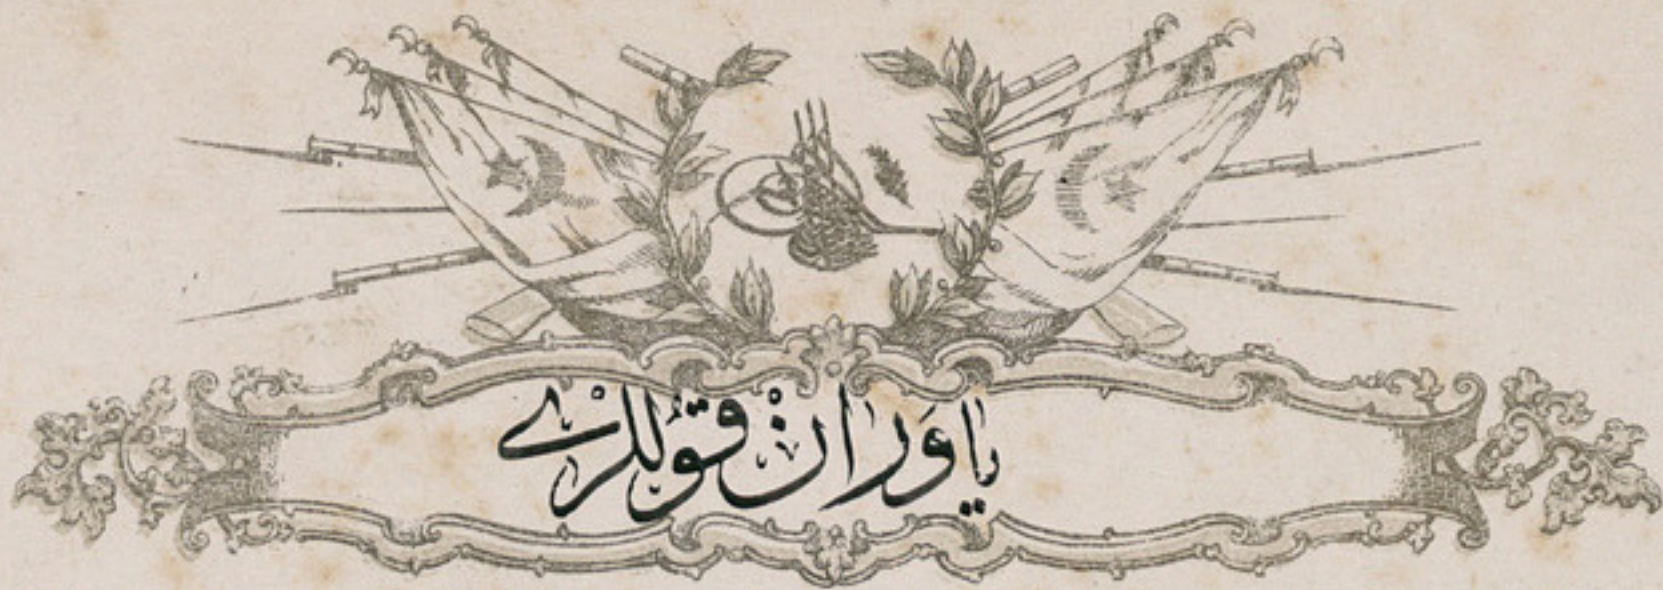 یاوَران قوُللرْے